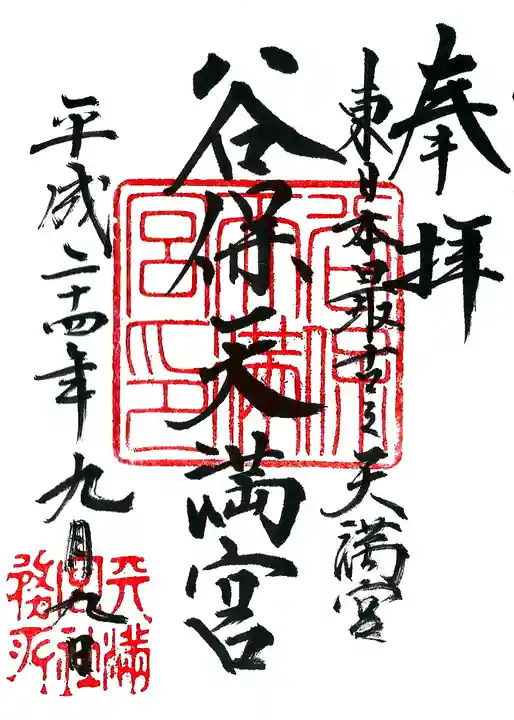 奉拝
東日本最古之天満宮
谷保天満宮
平成二十四年九月九日
谷保天満宮印
天満宮社務所